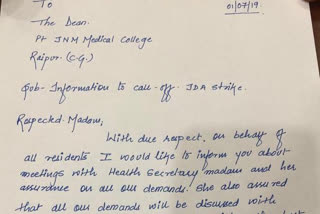 To
01/07/19.
The Dean.
Pt JNM Medical College
Raipur. (C.G.)
Sub- Information to call-off JDA strike.
Respected Madam,
With due respect, on behalf of
all residents I would like to inform you about
meetings with Health Secretary madam and her
assurance on all our demands. She also assured
that all our demands will be discussed with